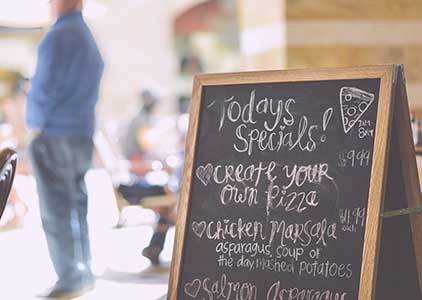 Todays
Specials!
7AM-
8PM
create your
own Pizza
$9.99
Chicken Marsala
$11.99
each
asparagus, soup of
the day, mashed potatoes
Salmon Asparagus